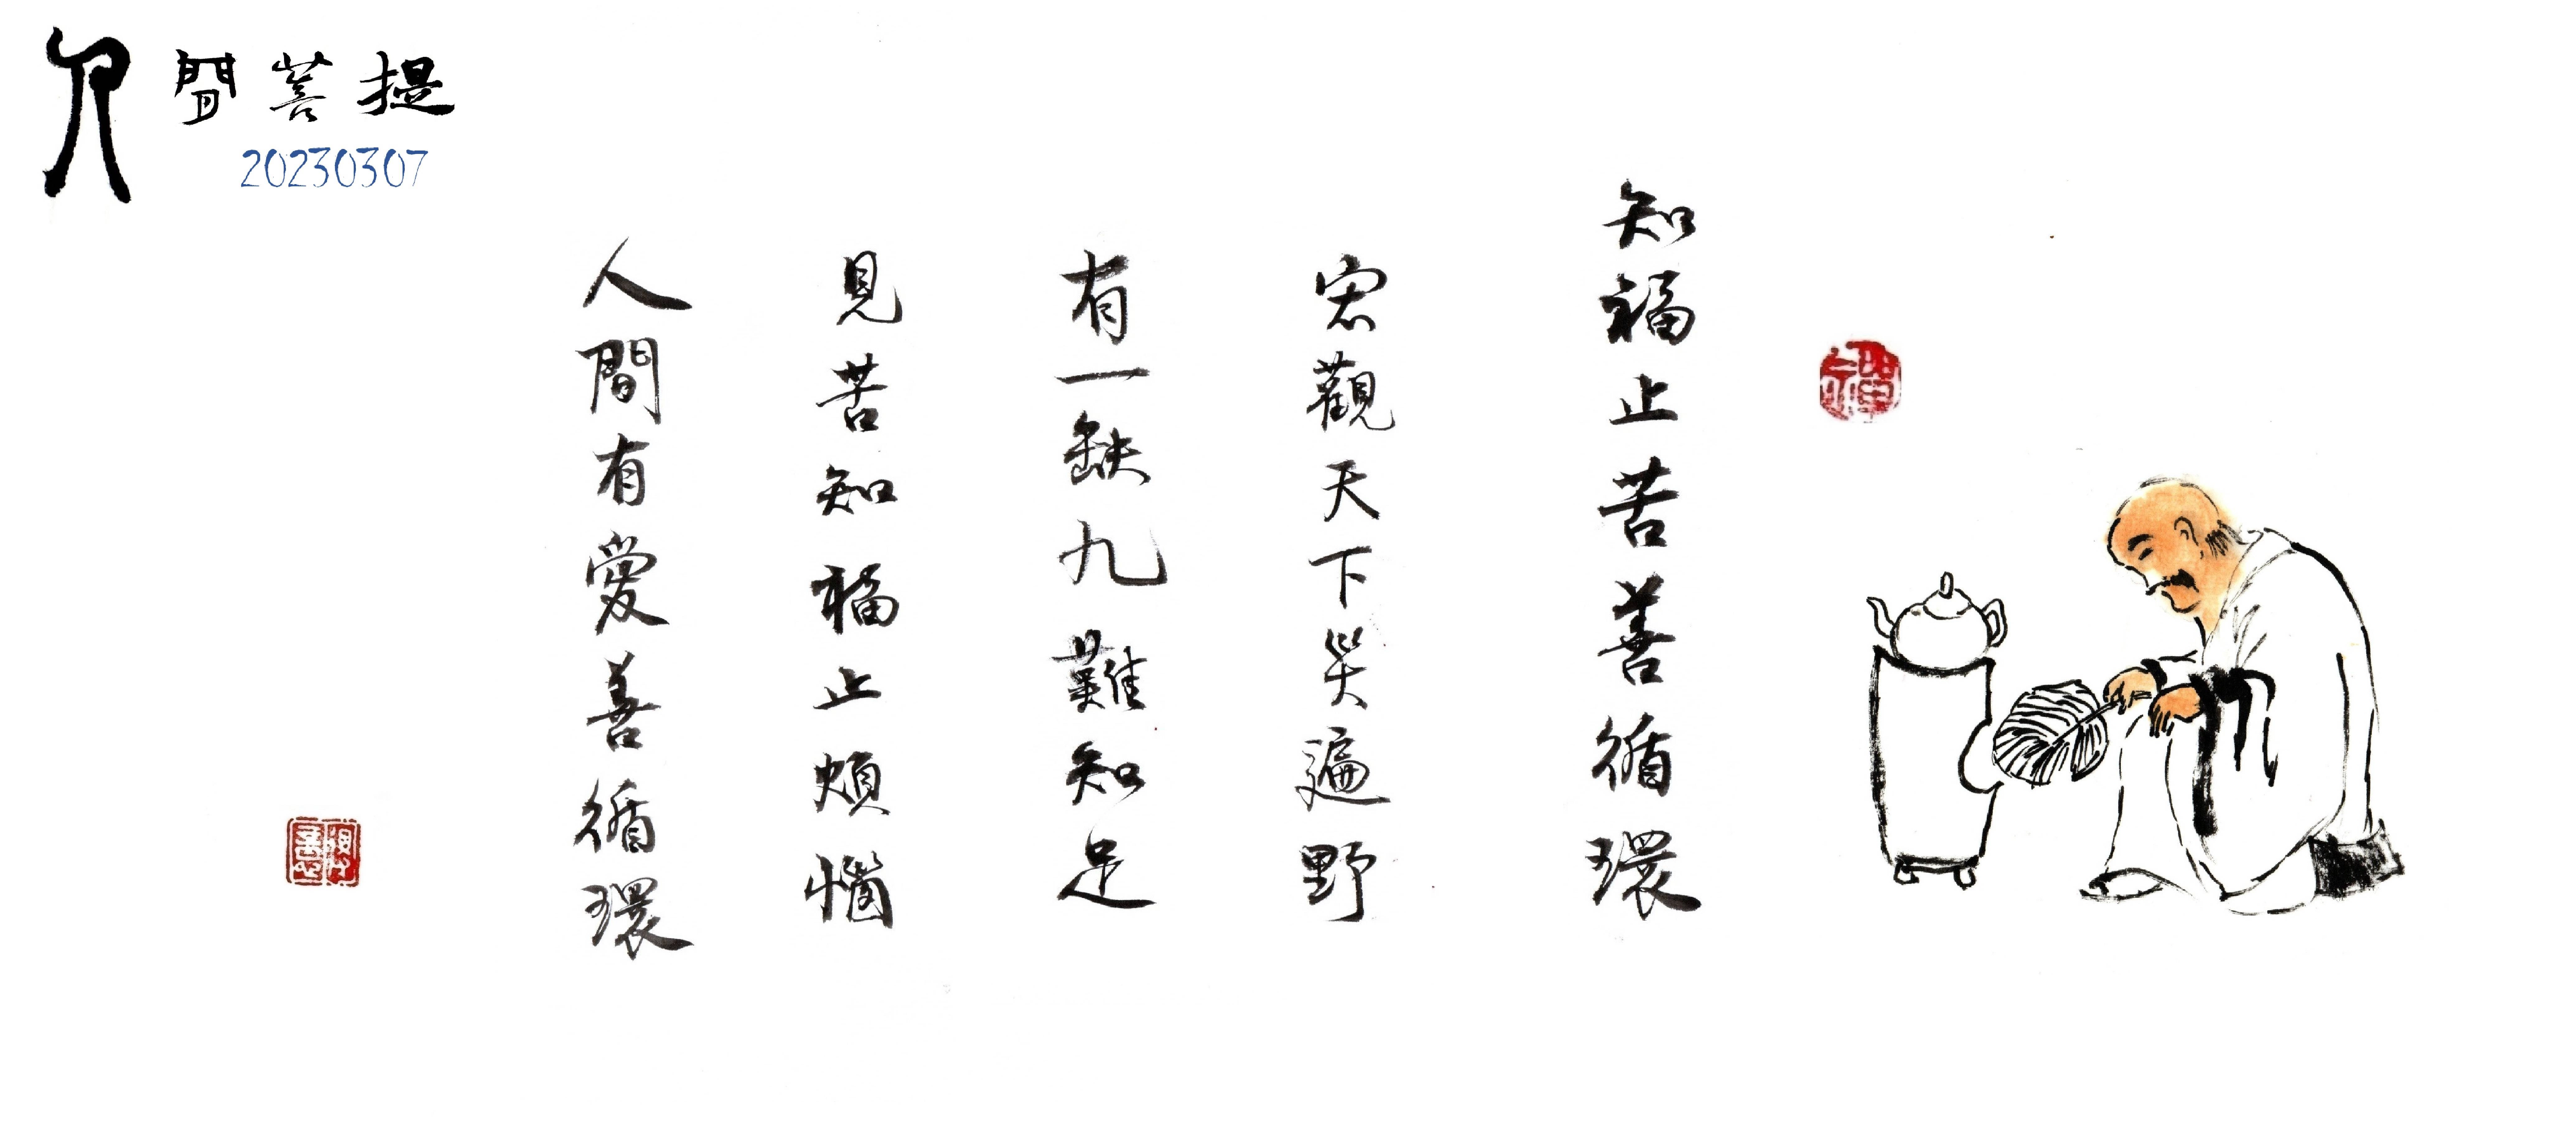 人間菩提
20230307
知福止苦善循環
宏觀天下災遍野
有一缺九難知足
見苦知福止煩惱
人間有愛善循環
禪